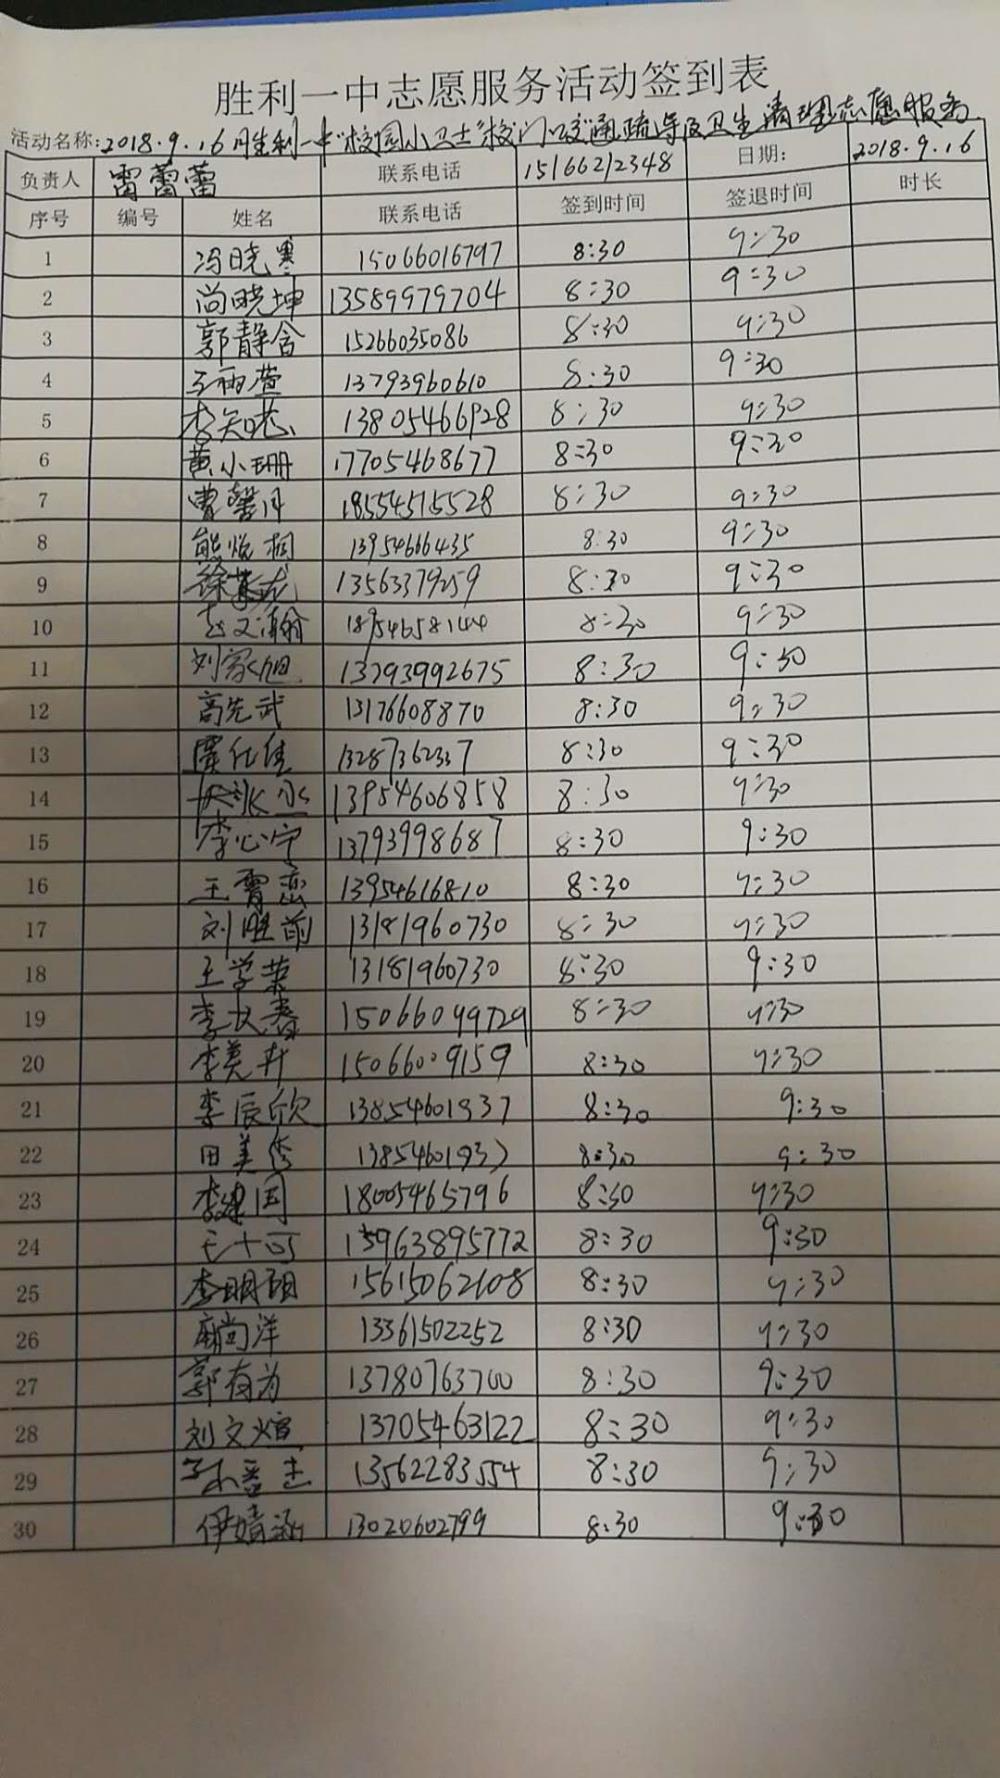 胜利一中志愿服务活动签到表
活动名称:2018.9.16胜利一中"校园小卫士"校门口交通疏导及卫生清理志愿服务
负责人 雷蕾蕾 联系电话 15166212348 日期: 2018.9.16
序号 编号 姓名 联系电话 签到时间 签退时间 时长
1 冯晓寒 15066016797 8:30 9:30
2 尚晓坤 13589979704 8:30 9:30
3 郭静含 15266035086 8:30 9:30
4 王雨萱 13793960610 8:30 9:30
5 李知 13805466928 8:30 9:30
6 黄小珊 17705468677 8:30 9:30
7 曹馨月 18554515528 8:30 9:30
8 熊悦桐 13954666435 8:30 9:30
9 徐 13563379259 8:30 9:30
10 赵文瀚 18954658144 8:30 9:30
11 刘家旭 13793992675 8:30 9:30
12 高先武 13176608870 8:30 9:30
13 13287362337 8:30 9:30
14 13954606858 8:30 9:30
15 李心宁 13793998687 8:30 9:30
16 王霄峦 13954616810 8:30 9:30
17 刘胜前 13181960730 8:30 9:30
18 王学荣 13181960730 8:30 9:30
19 李文春 15066099729 8:30 9:30
20 李美卉 1506609159 8:30 9:30
21 李辰欣 13854601937 8:30 9:30
22 田美秀 13854601937 8:30 9:30
23 李建国 18005465796 8:30 9:30
24 王十可 15963895772 8:30 9:30
25 李明颐 15615062608 8:30 9:30
26 尚洋 13361502252 8:30 9:30
27 郭有为 13780763700 8:30 9:30
28 刘文煊 13705463122 8:30 9:30
29 13562283554 8:30 9:30
30 伊婧涵 13020602799 8:30 9:30